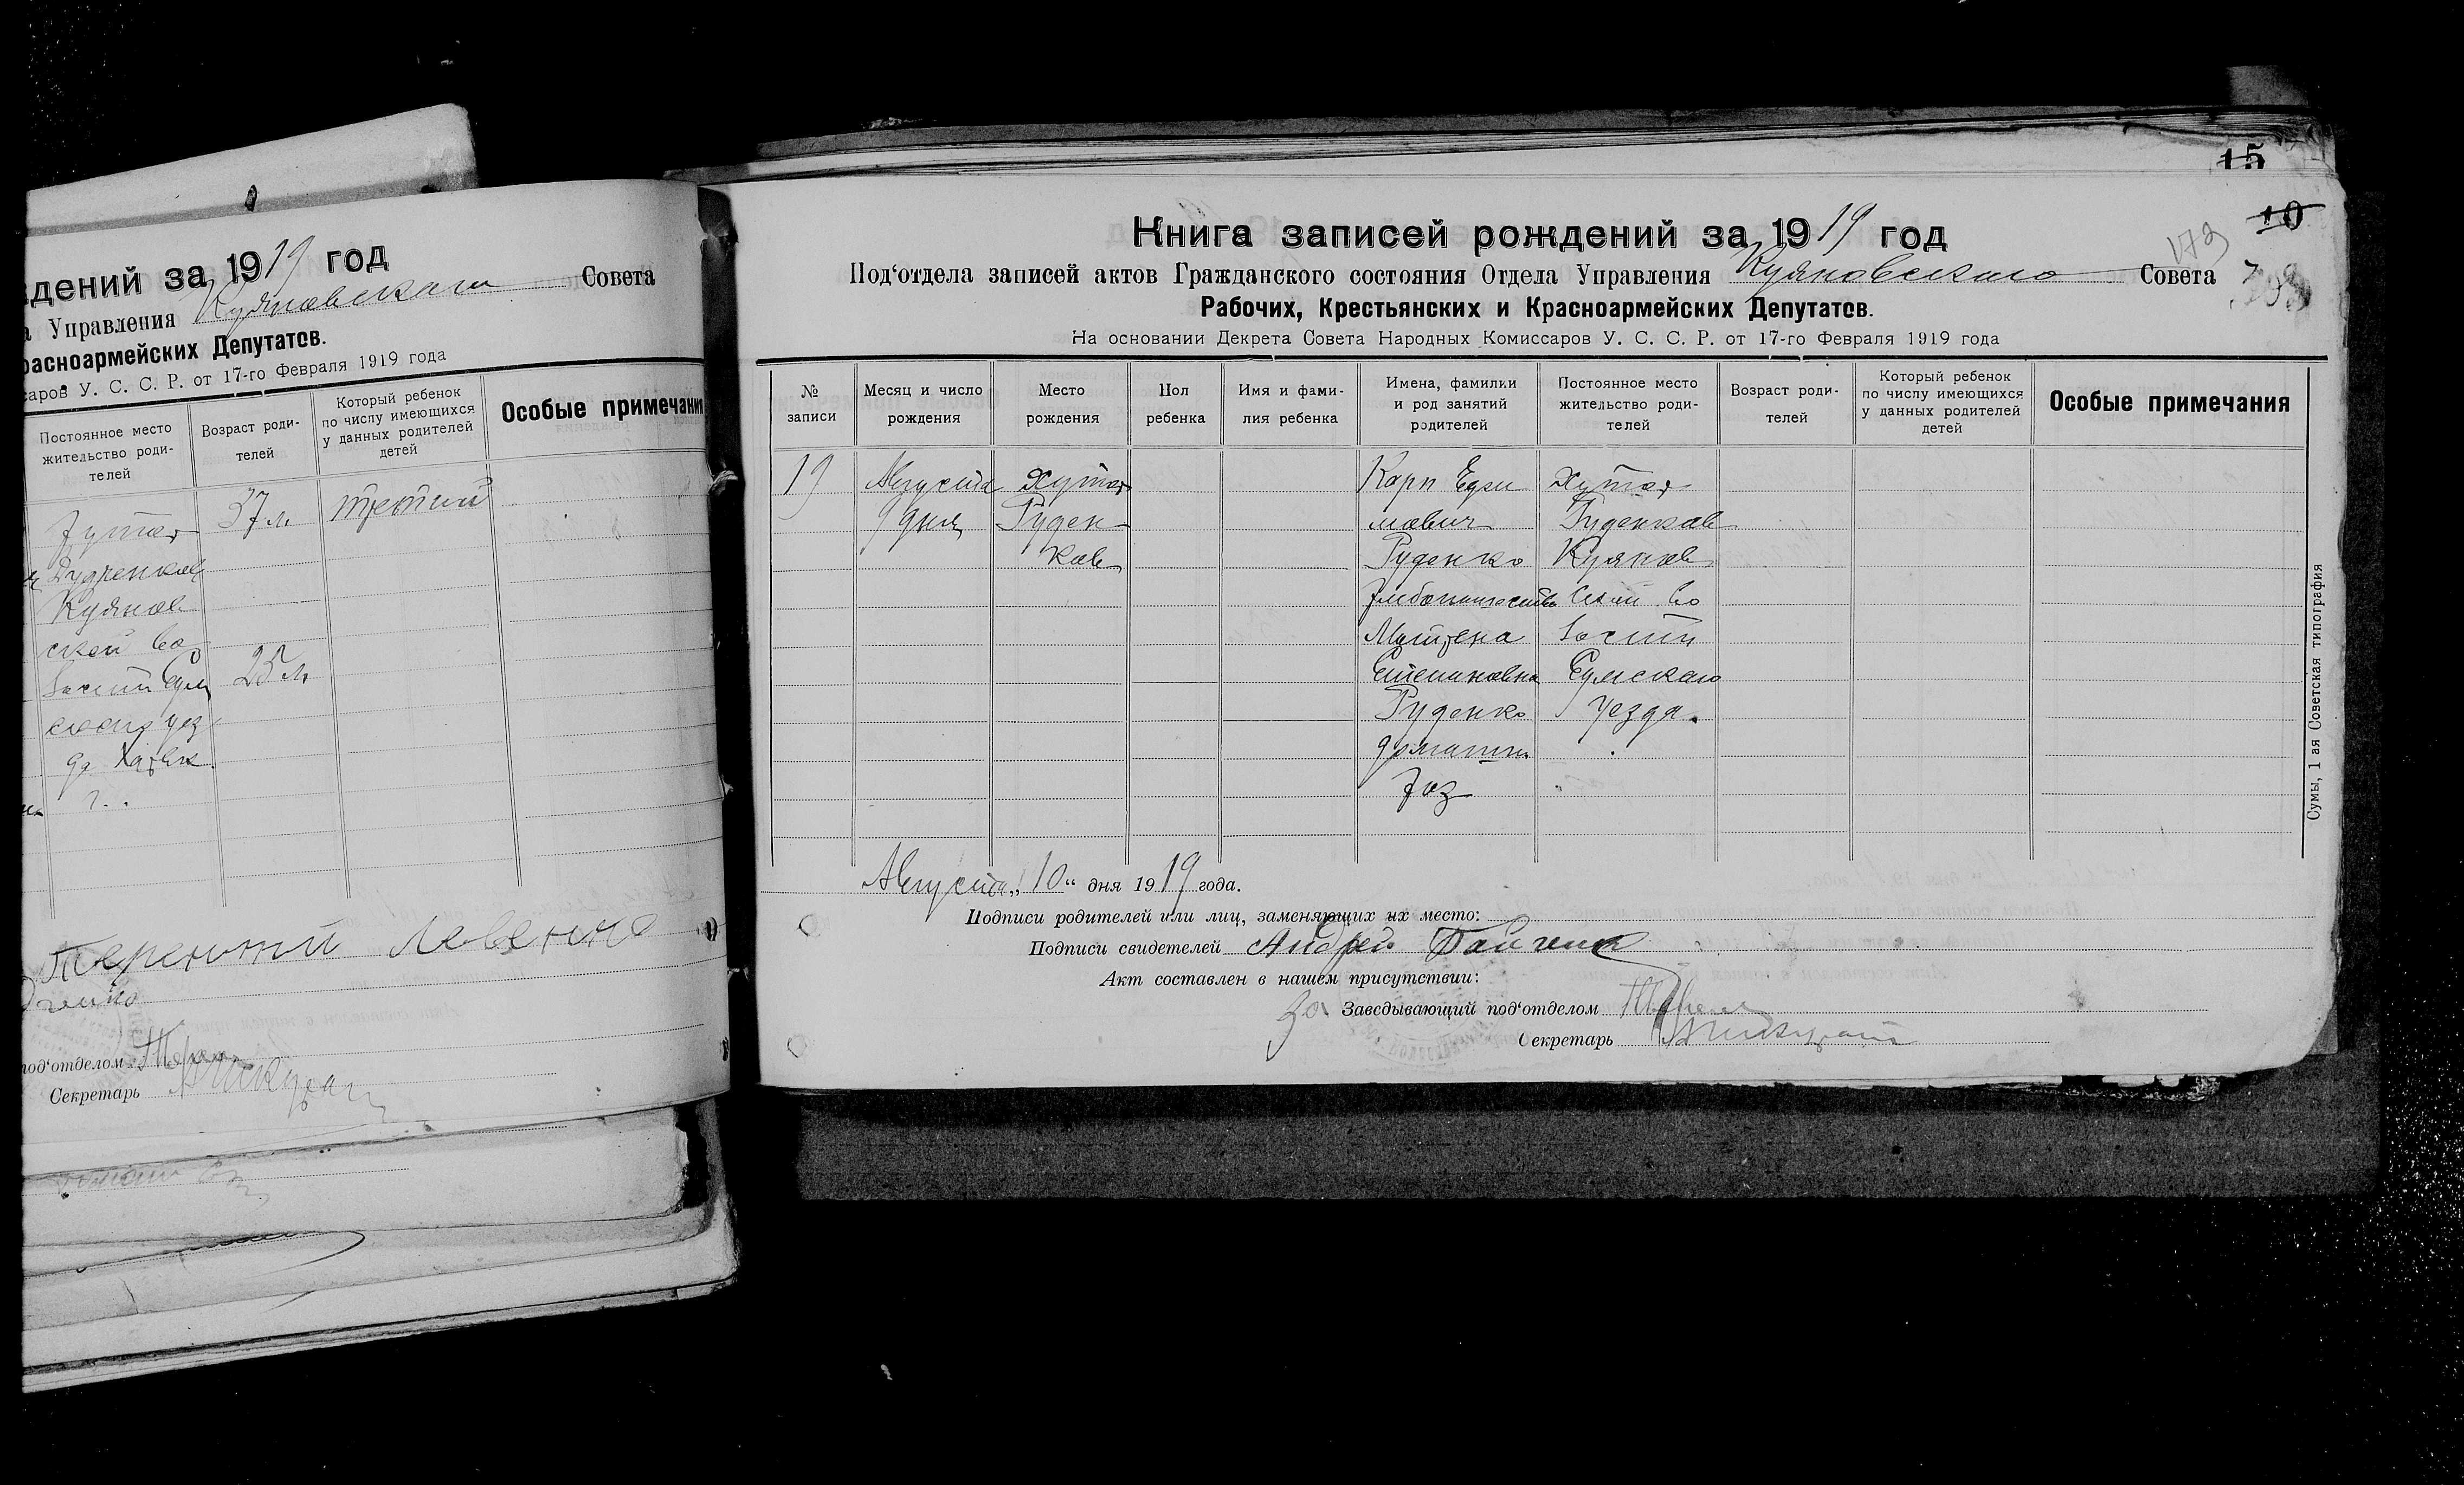 дений за 1919 год
Управления Куяновскаго Совета
расноармейских Депутатов.
саров У. С. С. Р. от 17-го Февраля 1919 года
Постоянное место жительство роди-телей
Возраст роди-телей
Который ребенок по числу имеющихся у данных родителей детей
Особые примечани
хутор 37 л. третий
Куянов
ской во
лости Сум 25 л.
скаго уез
да Харьк.
г.
Терентий Левенко
под‘отделом
Секретарь
15
10
173
Книга записей рождений за 1919 год
Под‘отдела записей актов Гражданского состояния Отдела Управления Куяновскаго Совета
Рабочих, Крестьянских и Красноармейских Депутатов.
На основании Декрета Совета Народных Комиссаров У. С. С. Р. от 17-го Февраля 1919 года
№ записи
Месяц и число рождения
Место рождения
Пол ребенка
Имя и фами-лия ребенка
Имена, фамилии и род занятий родителей
Постоянное место жительство роди-телей
Возраст роди-телей
Который ребенок по числу имеющихся у данных родителей детей
Особые примечания
19 Августа хутор Карп Ефи хутор
9 дня Руден- мович Руденков
ков Руденко Куянов
хлебопашество ской во
Матрена лости
Степановна Сумскаго
Руденко Уезда.
домашн.
хоз
Августа „10“ дня 1919 года.
Подписи родителей или лиц, заменяющих их место:
Подписи свидетелей Андрей
Акт составлен в нашем присутствии:
За Заведывающий под‘отделом
Секретарь
Сумы, 1 ая Советская типография